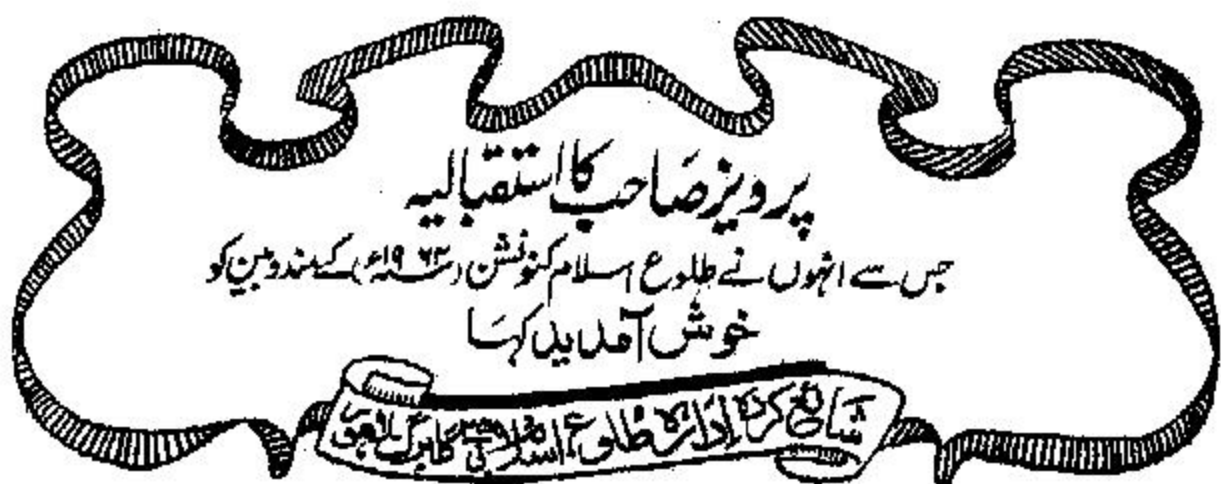 پرویز صاحب کا استقبالیہ
جس سے انہوں نے طلوع اسلام کنونشن (۱۹۶۳ء) کے مندوبین کو
خوش آمدید کہا
شائع کردہ ادارہ طلوع اسلام گلبرگ لاہور